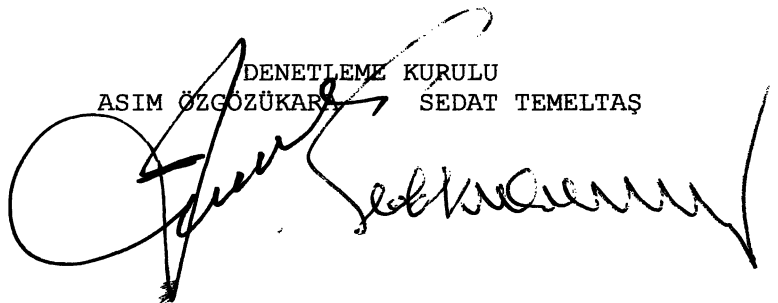 DENETLEME KURULU
ASIM ÖZGÖZÜKARA SEDAT TEMELTAŞ